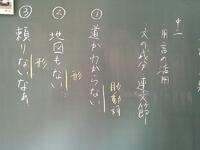 中二
用言の活用
文の成分 連文節
① 道がわからない
助動詞
② 地図もない
形
③ 頼りないなあ
形